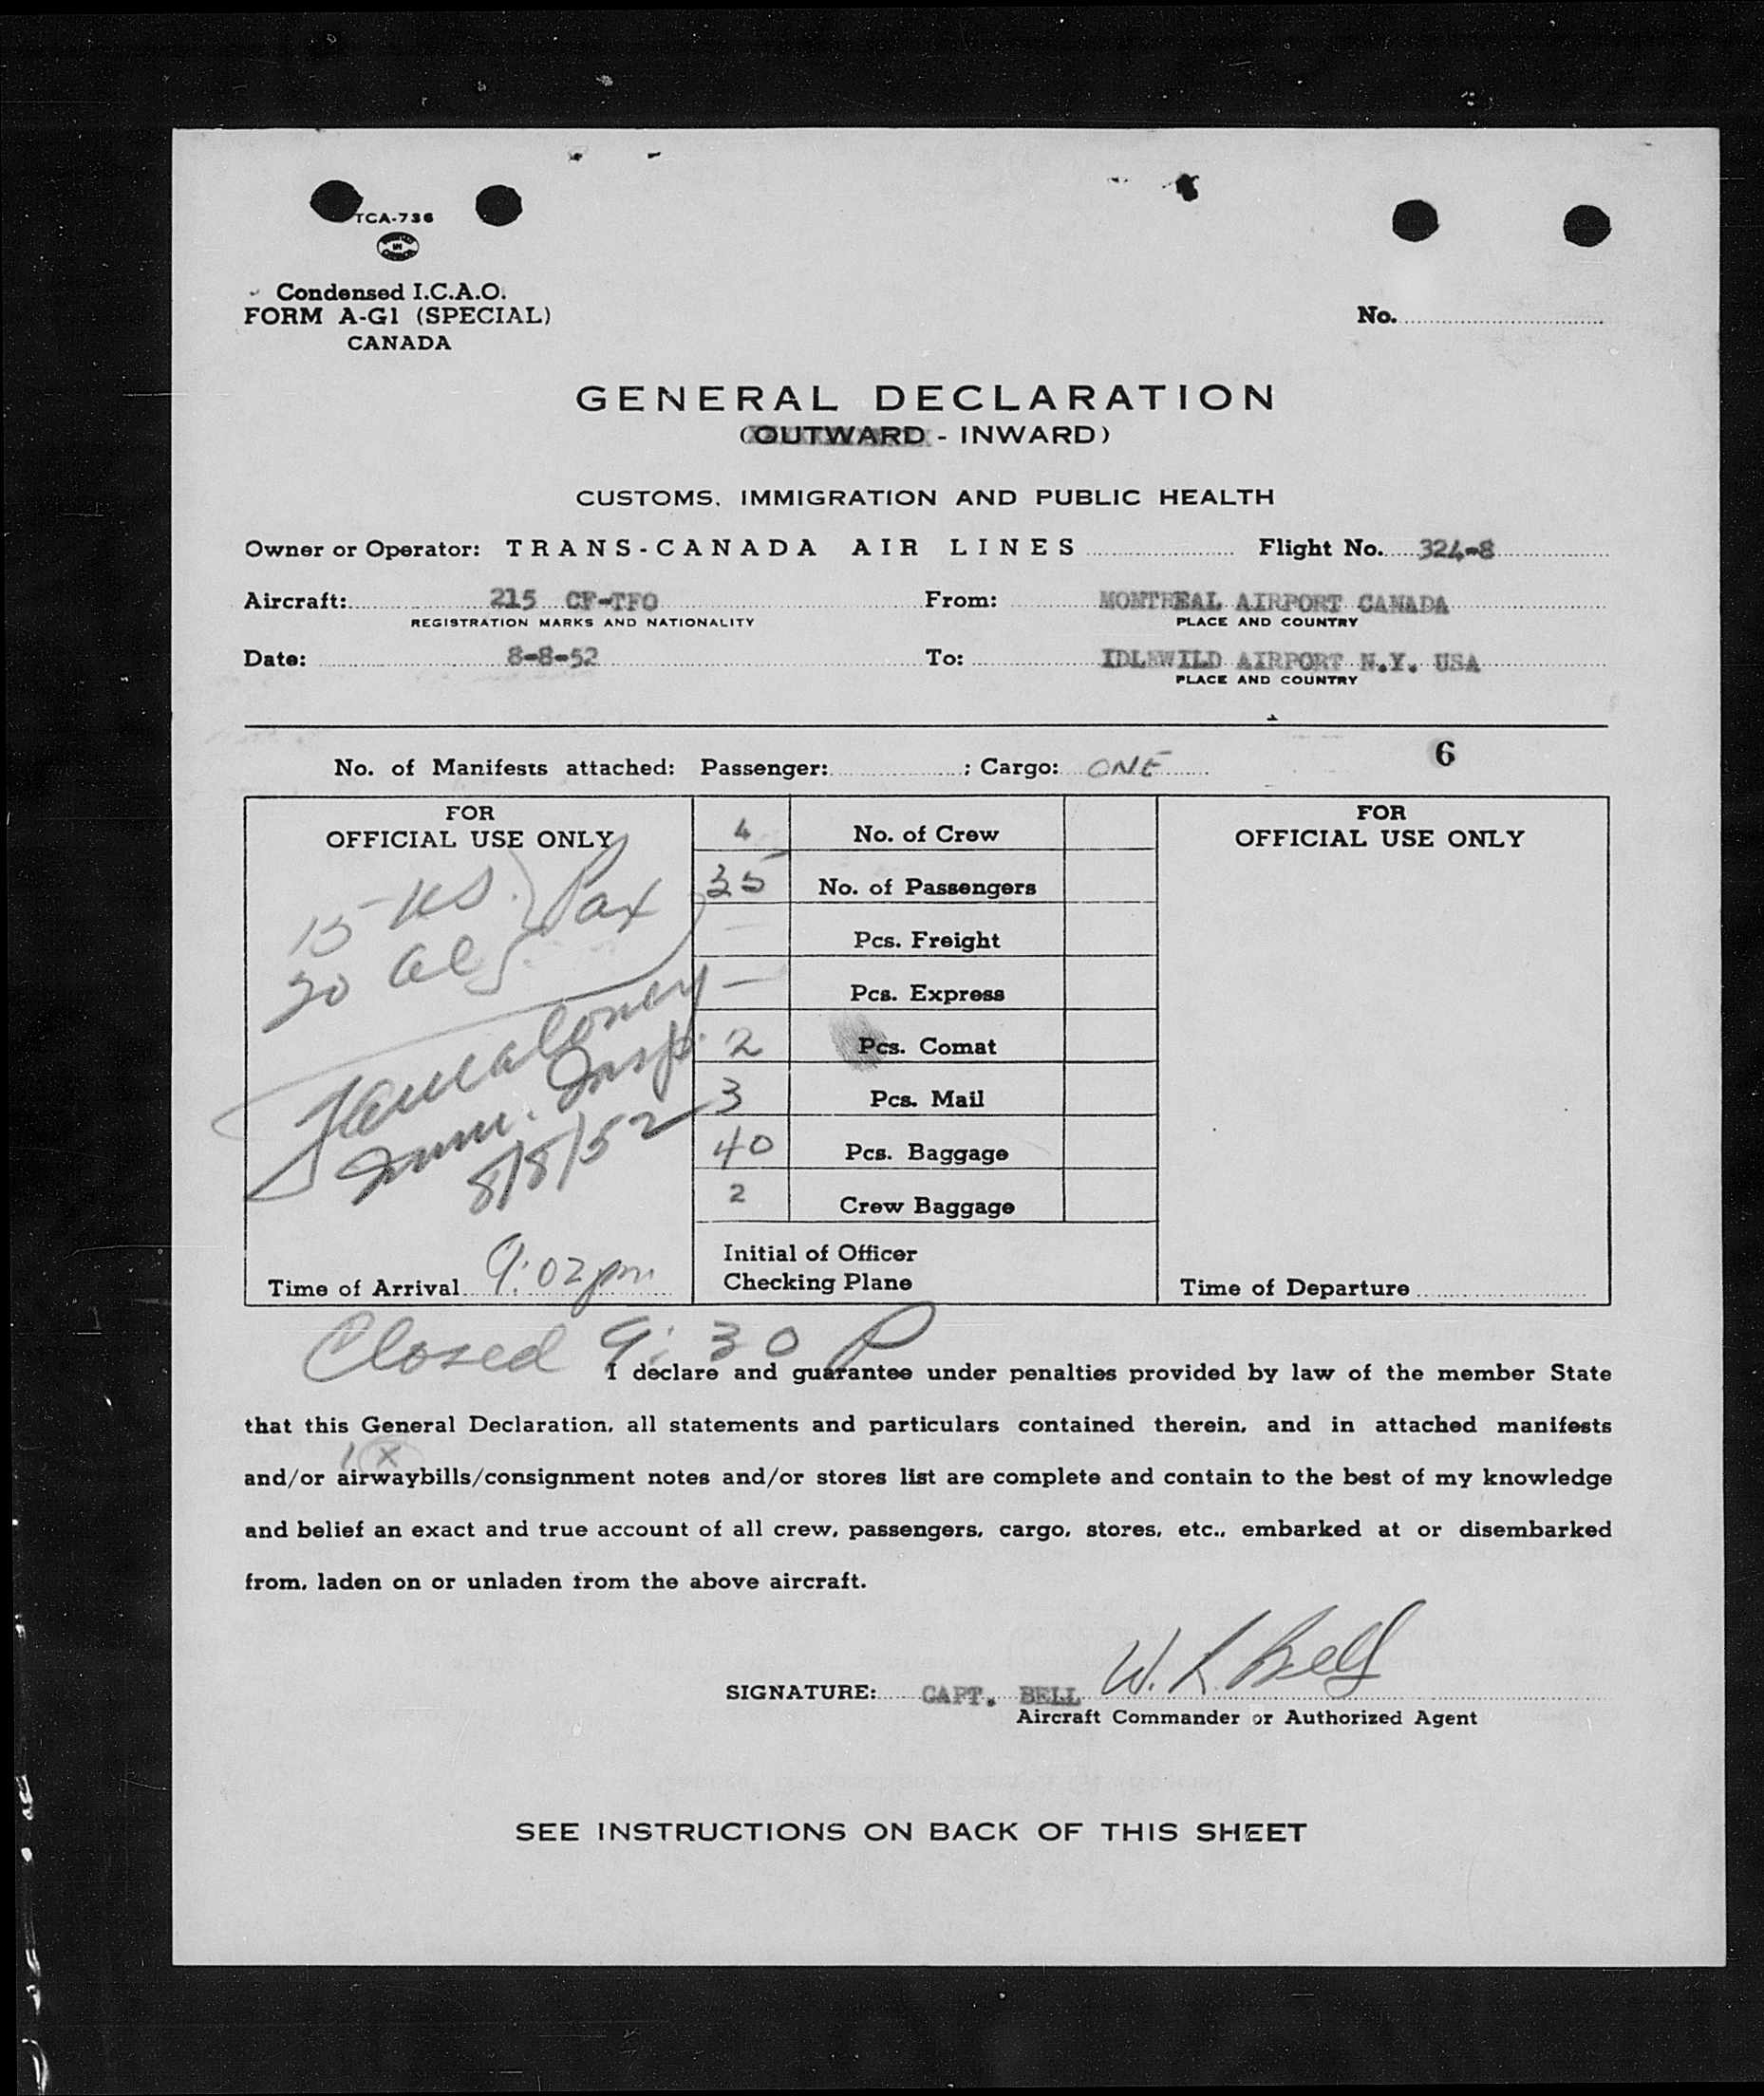 TCA-736
Condensed I.C.A.O.
FORM A-G1 (SPECIAL)
CANADA
No.
GENERAL DECLARATION
(OUTWARD - INWARD)
CUSTOMS, IMMIGRATION AND PUBLIC HEALTH
Owner or Operator: TRANS-CANADA AIR LINES Flight No. 324-8
Aircraft: 215 CF-TFO From: MONTREAL AIRPORT CANADA
REGISTRATION MARKS AND NATIONALITY PLACE AND COUNTRY
Date: 8-8-52 To: IDLEWILD AIRPORT N.Y. USA
PLACE AND COUNTRY
6
No. of Manifests attached: Passenger: ; Cargo: ONE
FOR
OFFICIAL USE ONLY
15 US. } Pax
20 Al
Imm. Insp.
8/8/52
Time of Arrival 9:02 pm
4 No. of Crew
35 No. of Passengers
- Pcs. Freight
- Pcs. Express
2 Pcs. Comat
3 Pcs. Mail
40 Pcs. Baggage
2 Crew Baggage
Initial of Officer
Checking Plane
FOR
OFFICIAL USE ONLY
Time of Departure
Closed 9:30 P
I declare and guarantee under penalties provided by law of the member State
that this General Declaration, all statements and particulars contained therein, and in attached manifests
1 X
and/or airwaybills/consignment notes and/or stores list are complete and contain to the best of my knowledge
and belief an exact and true account of all crew, passengers, cargo, stores, etc., embarked at or disembarked
from, laden on or unladen from the above aircraft.
SIGNATURE: CAPT. BELL W. R. Bell
Aircraft Commander or Authorized Agent
SEE INSTRUCTIONS ON BACK OF THIS SHEET